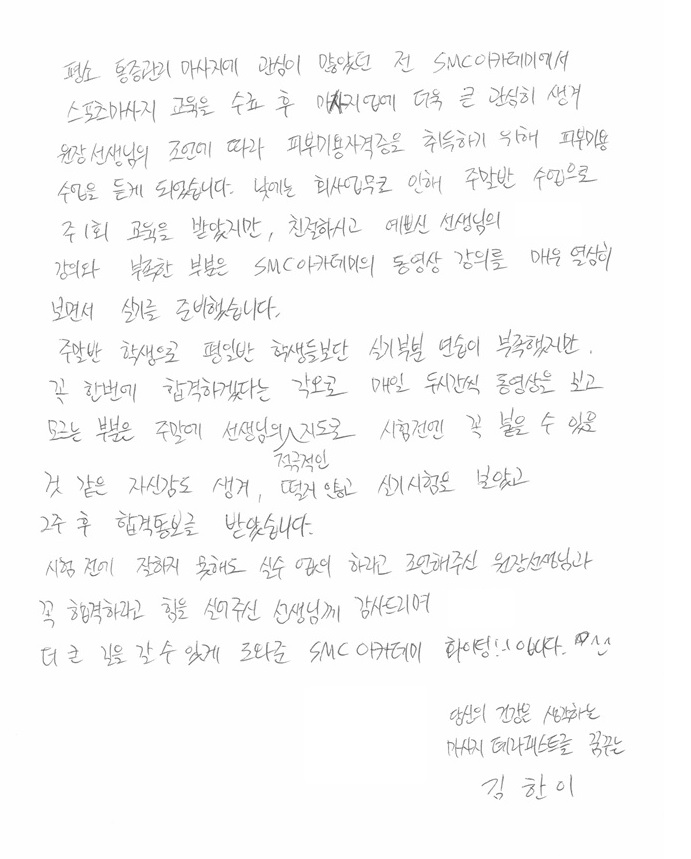 평소 통증관리 마사지에 관심이 많았던 전 SMC아카데미에서
스포츠마사지 교육을 수료 후 마사지업에 더욱 큰 관심히 생겨
원장선생님의 조언에 따라 피부미용자격증을 취득하기 위해 피부미용
수업을 듣게 되었습니다. 낮에는 회사업무로 인해 주말반 수업으로
주 1회 교육을 받았지만, 친절하시고 예쁘신 선생님의
강의와 부족한 부분은 SMC아카데미의 동영상 강의를 매우 열심히
보면서 실기를 준비했습니다.
주말반 학생으로 평일반 학생들보단 실기부분 연습이 부족했지만,
꼭 한번에 합격하겠다는 각오로 매일 두시간씩 동영상을 보고
모르는 부분은 주말에 선생님의 적극적인 지도로 시험전엔 꼭 붙을 수 있을
것 같은 자신감도 생겨, 떨지 않고 실기시험도 보았고
2주 후 합격통보를 받았습니다.
시험 전에 잘하지 못해도 실수 없이 하라고 조언해주신 원장선생님과
꼭 합격하라고 힘을 실어주신 선생님께 감사드리며
더 큰 길을 갈 수 있게 도와준 SMC아카데미 화이팅!! 입니다. ^^
당신의 건강을 생각하는
마사지 테라피스트를 꿈꾸는
김한이